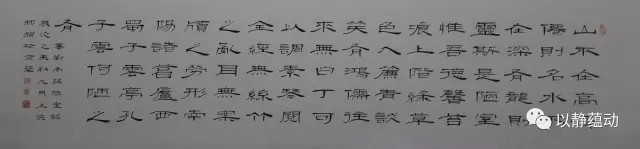 山不在高有
僊則名水不
在深有龍則
靈斯是陋室
惟吾德馨苔
痕上階綠草
色入簾青談
笑有鴻儒往
來無白丁可
以調素琴閱
金經無絲竹
之亂耳無案
牘之勞形南
陽諸葛廬西
蜀子雲亭孔
子雲何陋之
有
劉禹錫陋室銘
以静蕴动